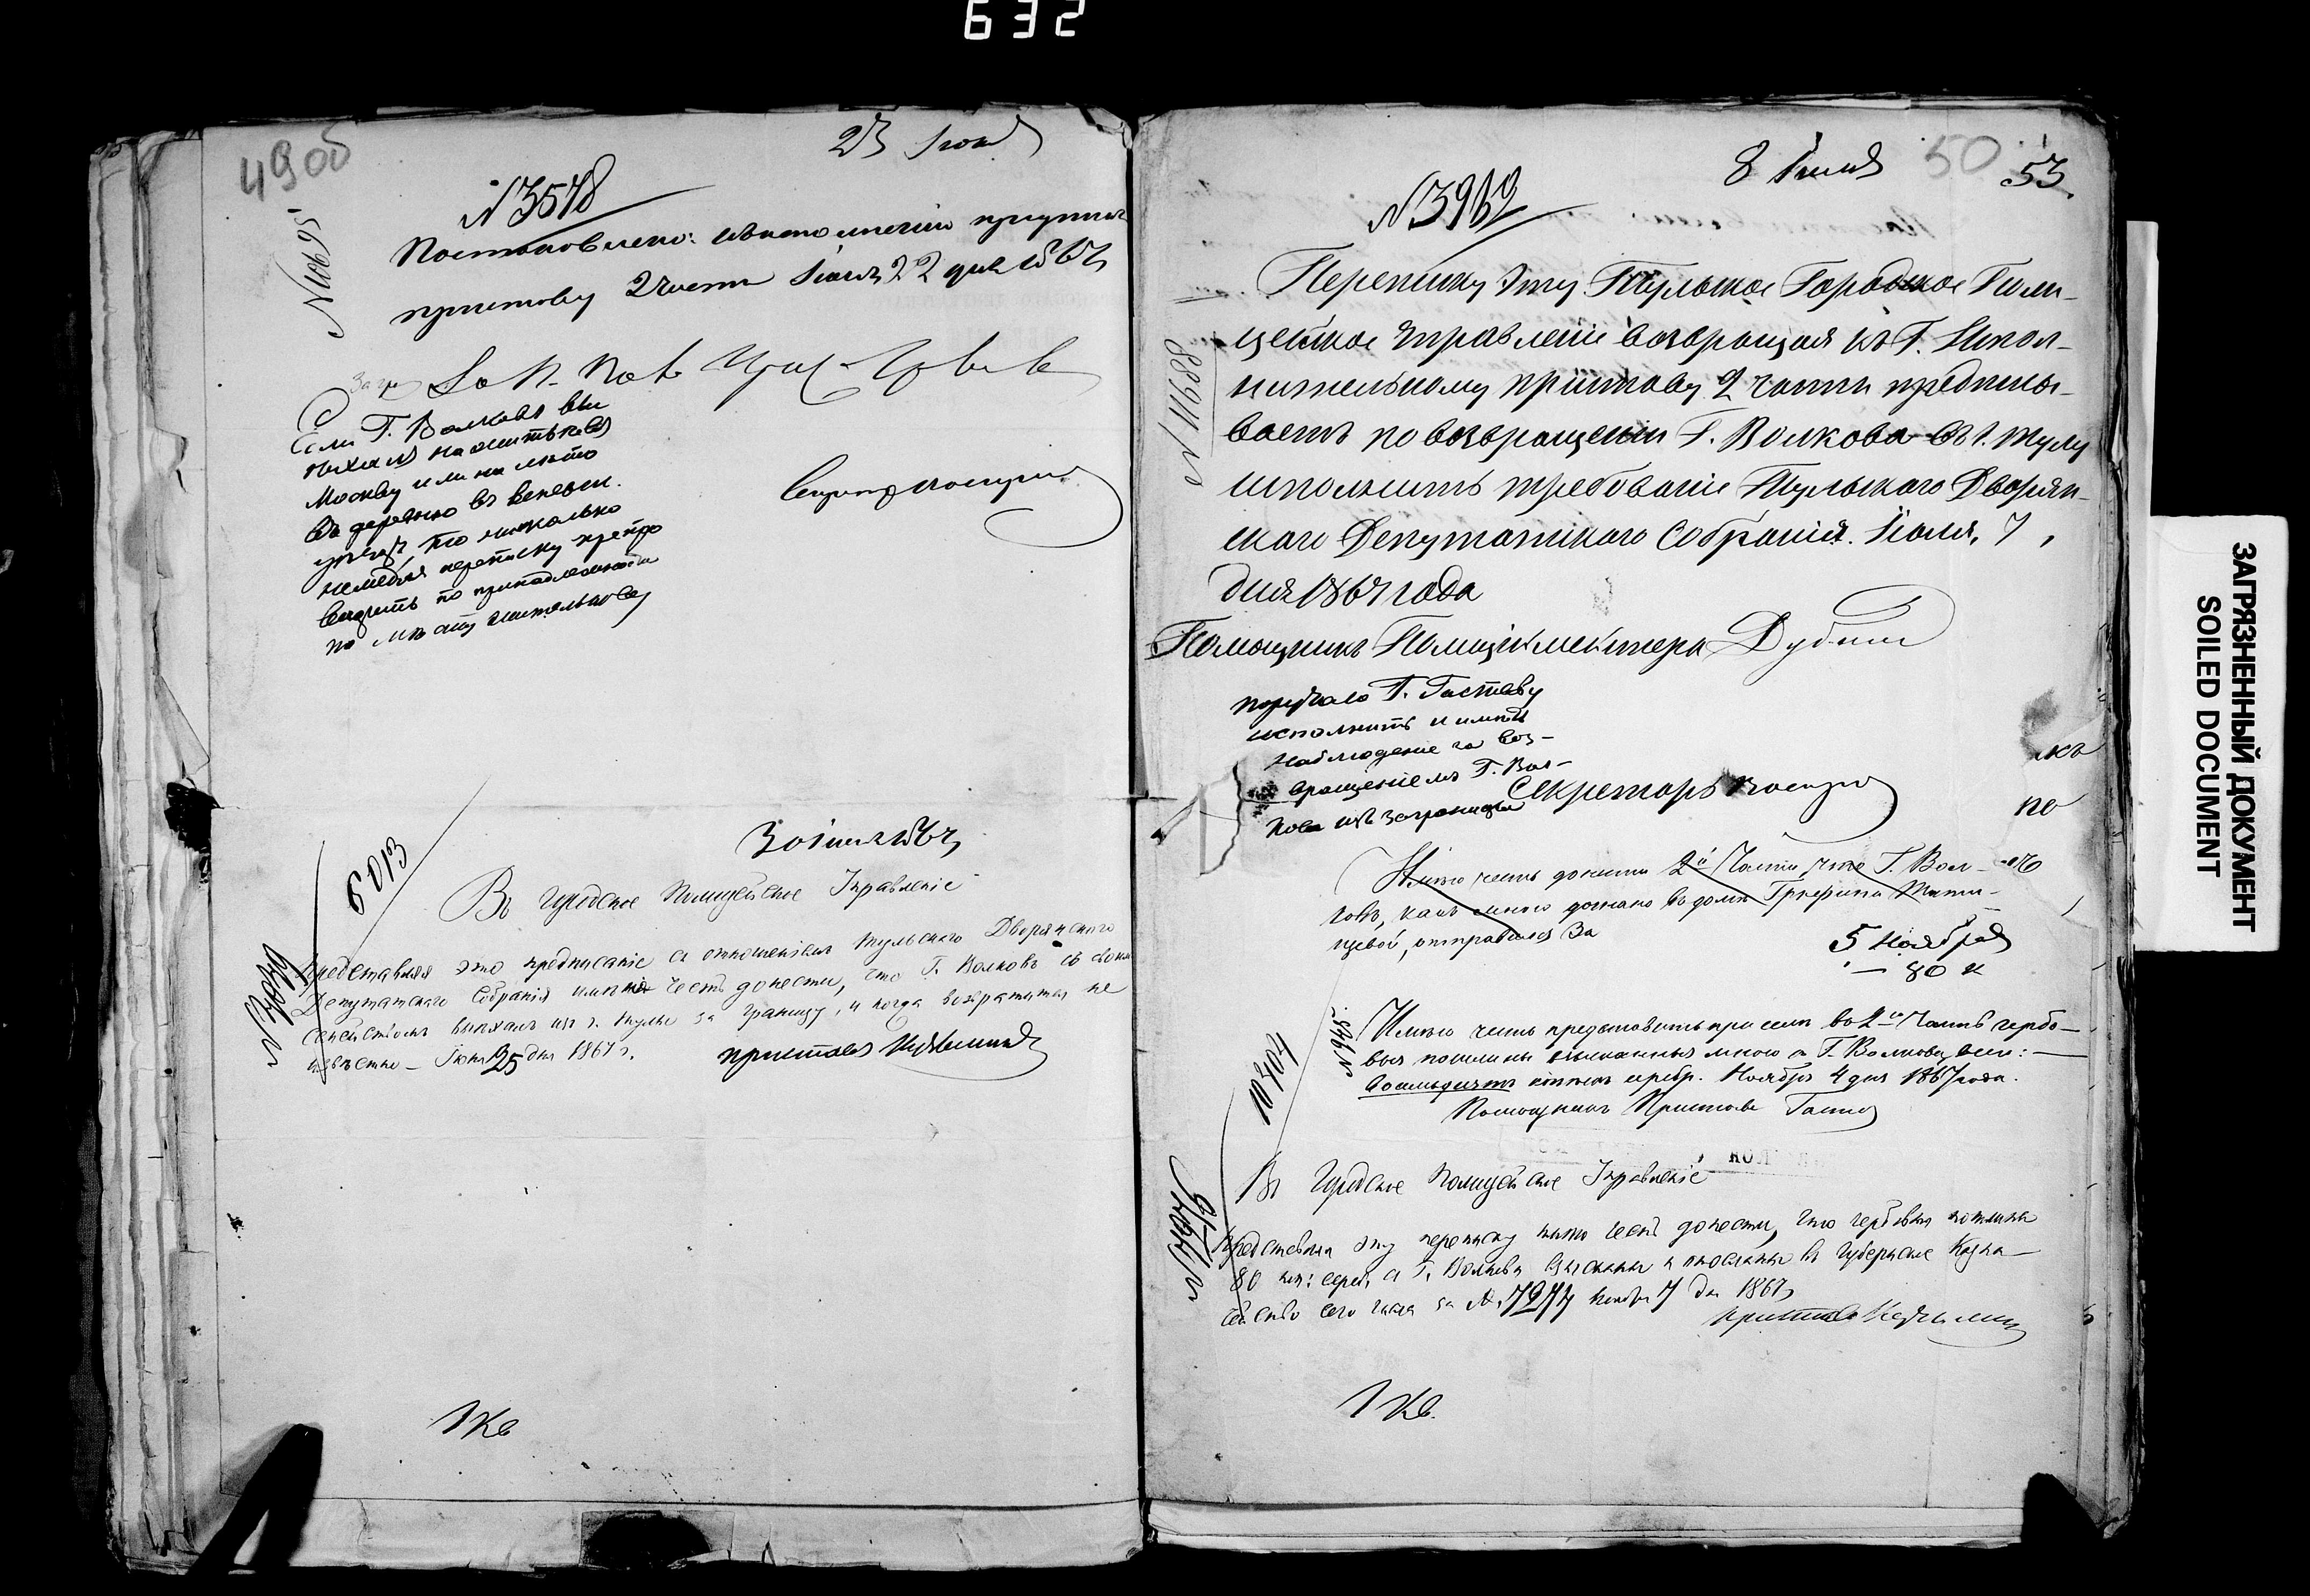 632
49об
23 Июня
№ 3578
№ 10695
Постановлено: къ исполненію
приставу 2 части Іюня 22 дня 1867 г.
Если Г. Волковъ вы
ѣхалъ на жительство въ
Москву или на лѣто
въ деревню въ Веневск.
уѣздъ, то нисколько
немедля переписку препро
водить по принадлежности
по мѣсту жительства
Секретарь
30 Іюня 1867 г.
6013
№ 7089
Въ Городское Полицейское Управленіе
Представляя это предписаніе съ отношеніемъ Тульскаго Дворянскаго
Депутатскаго Собранія имѣю честь донести, что Г. Волковъ съ своимъ
семействомъ выѣхалъ изъ г. Тулы за границу, и когда возвратится не
извѣстно – Іюня 25 дня 1867 г.
Приставъ
1 Кв
8 Іюля
50
53
№ 3912
№ 11488
Переписку эту Тульское Городское Поли-
цейское Управленіе возвращая къ Г. Испол-
нительному приставу 2 части предписы-
ваетъ по возвращеніи Г. Волкова въ г. Тулу
исполнить требованіе Тульскаго Дворян-
скаго Депутатскаго Собранія. Іюля, 7,
дня 1867 года
Помощникъ Полиціймейстера
поручаю Г. Гастеву
исполнить и имѣть
наблюденіе за воз-
вращеніемъ Г. Вол-
кова изъ заграницы
Секретарь
къ
по
Имѣю честь донести 2й Части что Г. Вол-
ковъ, какъ мною дознано въ домѣ
отправился За
5 Ноября
– 80 к
10404
Имѣю честь представить при семъ во 2ю Часть гербо-
выя пошлины взысканныя мною съ Г. Волкова, всего:
восемьдесятъ копѣекъ серебр. Ноября 4 дня 1867 года.
Помощникъ Пристава Гастев
Въ Городское Полицейское Управленіе
Представляя эту переписку имѣю честь донести, что гербовыя пошлины
80 коп: сереб. съ Г. Волкова взысканы и отосланы въ Губернское Казна-
чейство сего числа за №. 7277 Ноября 7 дня 1867 г.
Приставъ
1 Кв.
ЗАГРЯЗНЕННЫЙ ДОКУМЕНТ
SOILED DOCUMENT